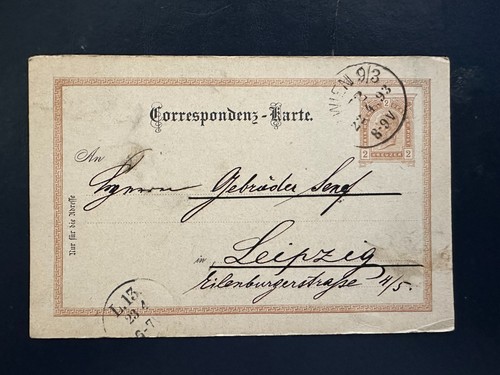 WIEN 9/3
2
22.4.93
8·9V
2
2 2
Correspondenz-Karte.
An
Herrn Gebrüder Senf
Nur für die Adresse
in Leipzig
Eilenburgerstraße 4/5.
L.13.
23 4
6-7